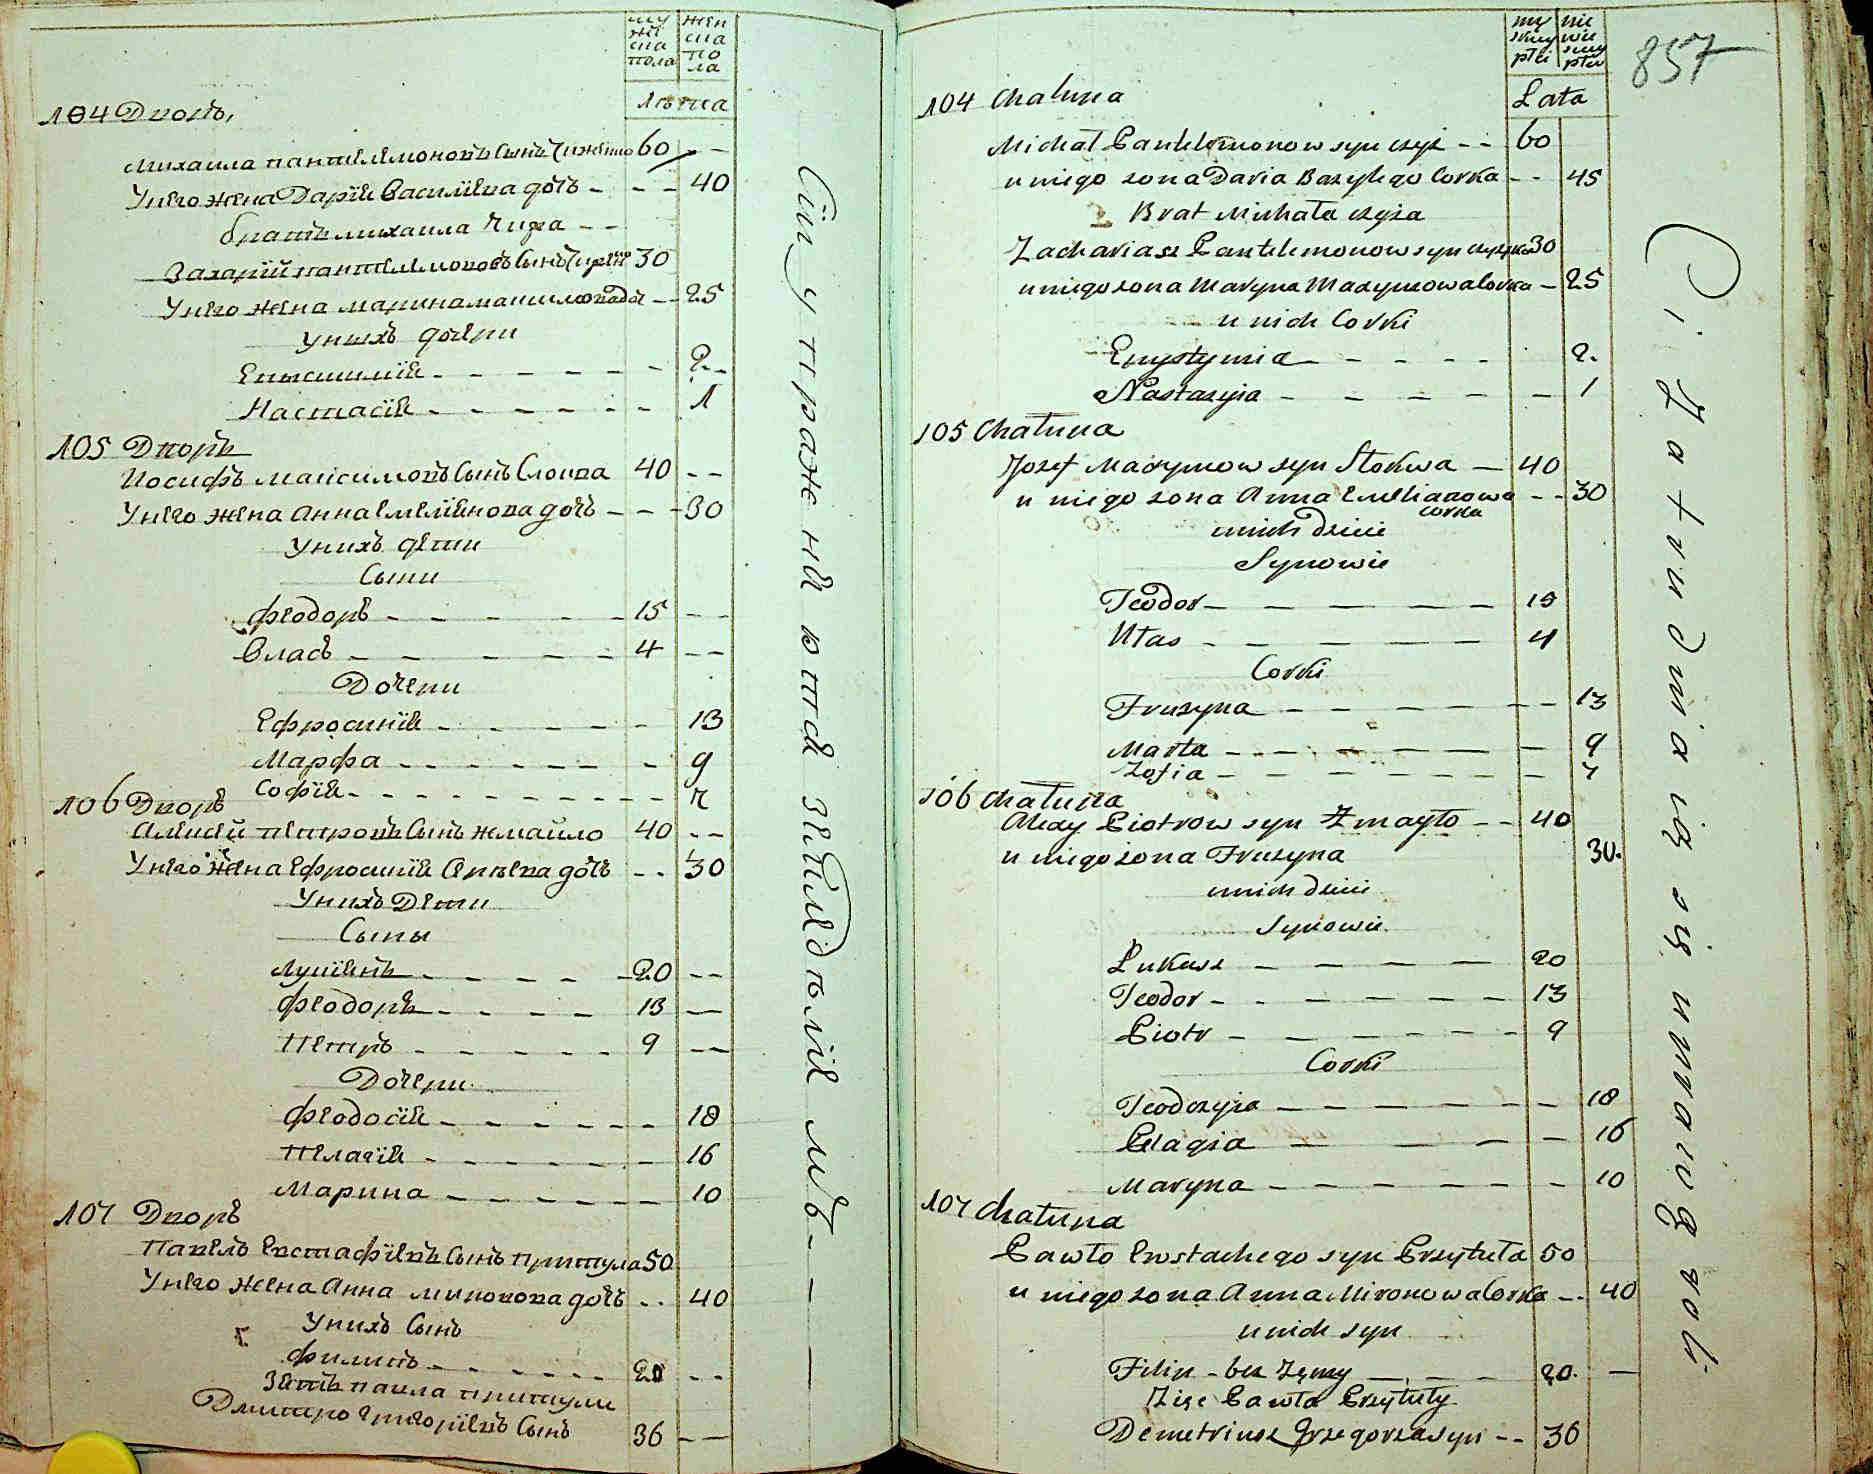 мужеска пола
женска пола
Лѣта
104 Дворъ,
Михаила Пантелемоновъ Сынъ Чижено 60 - -
У него жена Дарїя Василїева дочь - - - 40
братъ михаила Чижа - -
Захарїй пантелемоновъ Сынъ 30
У него жена марина максимова доч - - 25
У нихъ дочери
Епистимїя - - - - - - 2 - -
Настасїя - - - - - - 1
105 Дворъ
Иосифъ максимовъ Сынъ Слоква 40 - -
У него жена Анна Емелїянова дочь - - - 30
У нихъ дети
Сыни
Феодоръ - - - - - 15 - -
Власъ - - - - - 4 - -
Дочери
Ефросинїя - - - - - 13
Марфа - - - - - - 9
Софїя - - - - - - - - 7
106 Дворъ
Алексѣй петровъ Сынъ жмайло 40 - -
У него жена Ефросинїя дочь - - 30
У нихъ Дети
Сыны
Лукїянъ - - - - - 20 - -
Феодоръ - - - - 13 - -
Петръ - - - - - 9 - -
Дочери
Феодосїя - - - - - - 18
Пелагїя - - - - - 16
Марина - - - - - - 10
107 Дворъ
Павелъ Евстафїевъ Сынъ Притула 50
У него жена Анна миронова дочь - - 40
У нихъ Сынъ
Филипъ - - - - - - 20 - -
Зять павла притули
Дмитро Григорїевъ Сынъ 36 - -
Сїи упражняются земледѣлїемъ - - -
męskiey płci
niewieskiey płci
857
Lata
104 Chałupa
Michał Pantelemonow syn czyż - - 60
u niego żona Daria Bazylego Corka - - 45
Brat Michała czyża
Zachariasz Pantelemonow syn 30
u niego żona Maryna Maxymowa Corka - 25
u nich Corki
Epystymia - - - - - 2.
Nastazyia - - - - - 1
105 Chałupa
Jozef Maxymow syn Słokwa - 40
u niego żona Anna Emelianowa corka - - 30
u nich dzieci
Synowie
Teodor - - - - - - 15
Ułas - - - - - 4
Corki
Fruzyna - - - - - - - 13
Marta - - - - - - - 9
Zofia - - - - - - - - 7
106 Chałupa
Alexy Piotrow syn Zmayło - - 40
u niego żona Fruzyna 30.
u nich dzieci
Synowie
Łukasz - - - - - 20
Teodor - - - - - - 13
Piotr - - - - - - 9
Corki
Teodozyia - - - - - - 18
Pelagia - - - - 16
Maryna - - - - - - 10
107 Chałupa
Pawło Ewstachego syn Przytuła 50
u niego żona Anna Mironowa Corka - - 40
u nich syn
Filip - bez żony - - - 20. -
Zięc Pawła Przytuły
Demetriusz Grzegorza syn - - 36
Ci Zatrudniaią się uprawą roli